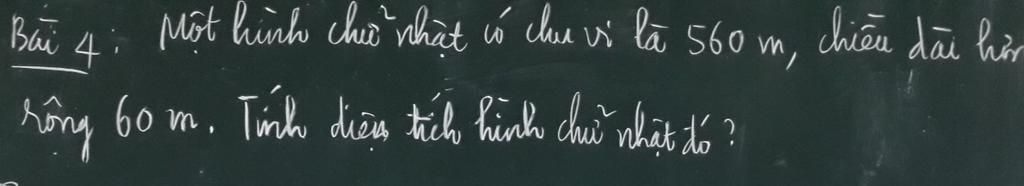 Bài 4: Một hình chữ nhật có chu vi là 560 m, chiều dài hơn
rộng 60 m. Tính diện tích hình chữ nhật đó?